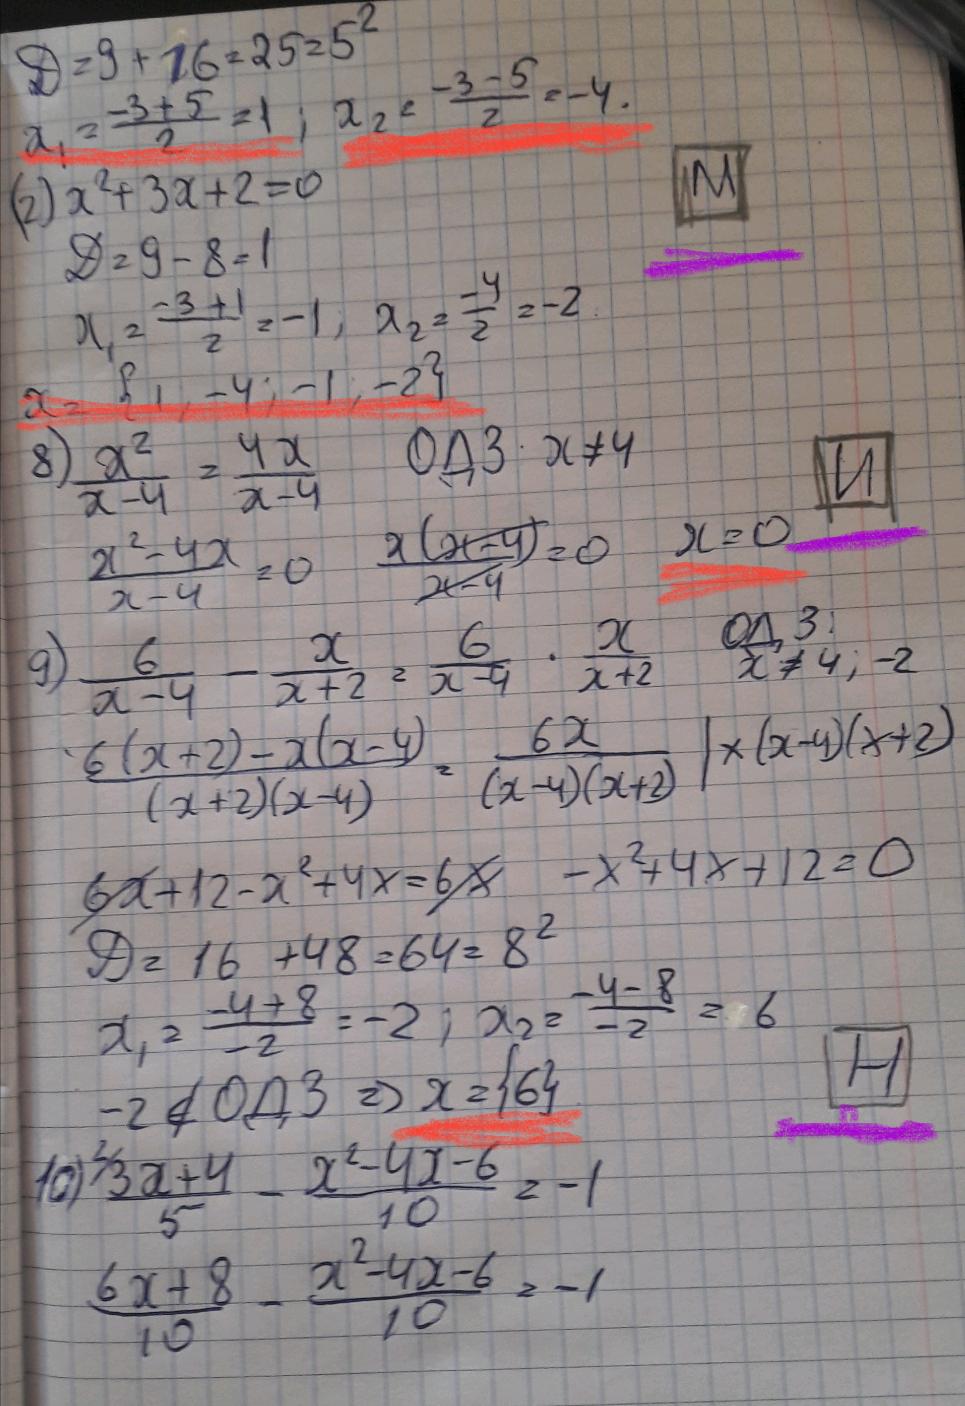 Д=9+16=25=5²
x₁=(-3+5)/2=1; x₂=(-3-5)/2=-4.
(2) x²+3x+2=0
М
Д=9-8=1
x₁=(-3+1)/2=-1; x₂=-4/2=-2.
x={1; -4; -1; -2}
8) x²/(x-4)=4x/(x-4) ОДЗ: x≠4
И
(x²-4x)/(x-4)=0 x(x-4)/(x-4)=0 x=0
9) 6/(x-4)-x/(x+2)=6/(x-4)·x/(x+2) ОДЗ: x≠4; -2
(6(x+2)-x(x-4))/((x+2)(x-4))=6x/((x-4)(x+2)) |×(x-4)(x+2)
6x+12-x²+4x=6x -x²+4x+12=0
Д=16+48=64=8²
x₁=(-4+8)/-2=-2; x₂=(-4-8)/-2=6
-2∉ОДЗ ⇒ x={6}
Н
10) ²⁄(3x+4)/5-(x²-4x-6)/10=-1
(6x+8)/10-(x²-4x-6)/10=-1